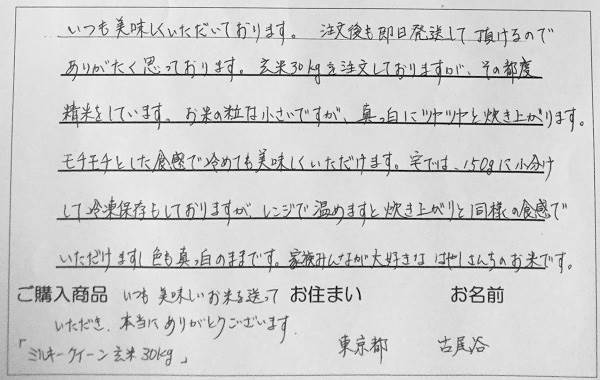 いつも美味しくいただいております。 注文後も即日発送して頂けるので
ありがたく思っております。玄米30kgを注文しておりますが、その都度
精米をしています。お米の粒は小さいですが、真っ白にツヤツヤと炊き上がります。
モチモチとした食感で冷めても美味しくいただけます。宅では、150gに小分け
して冷凍保存もしておりますが、レンジで温めますと炊き上がりと同様の食感で
いただけますし色も真っ白のままです。家族みんなが大好きなはやしさんちのお米です。
ご購入商品 いつも美味しいお米を送って お住まい お名前
いただき、本当にありがとうございます。
「ミルキークイーン玄米30kg」 東京都 古尾谷